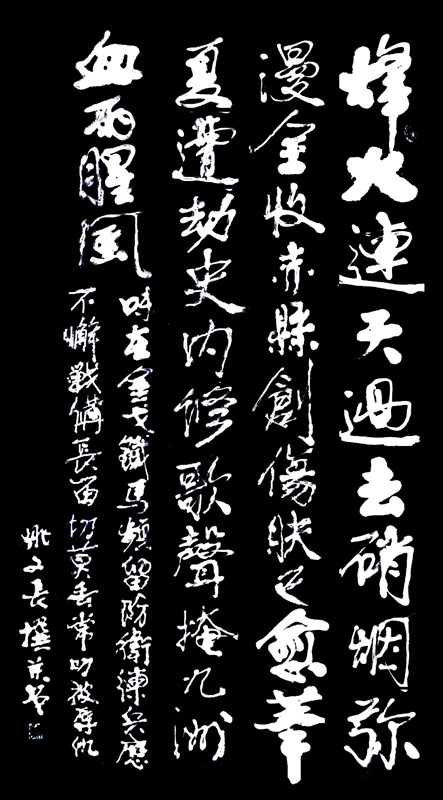 烽火連天過去硝烟弥
漫全收赤縣創傷肤已愈華
夏遭劫史内修歌聲掩九洲
血雨腥風
時在金戈鐵馬頻留防衛練兵應
不懈戰備長留切莫丢常叨被辱仇
姚文长撰并书